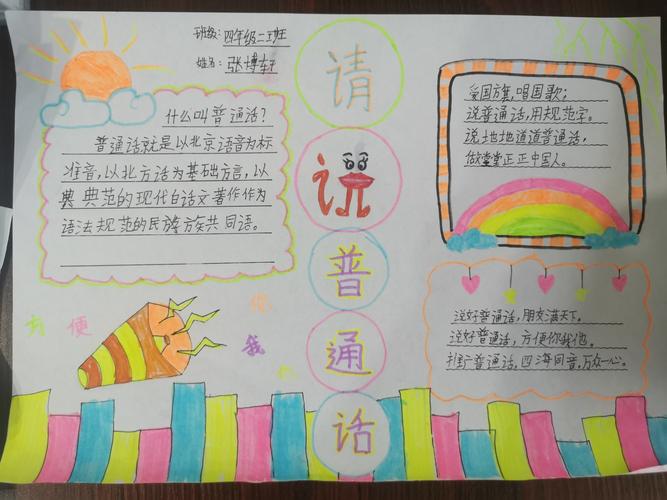 班级：四年级二班
姓名：张博轩
什么叫普通话？
普通话就是以北京语音为标
准音，以北方话为基础方言，以
典典范的现代白话文著作作为
语法规范的民族族共同语。
方便
你
我
请
说
普
通
话
爱国旗，唱国歌；
说普通话，用规范字。
说地地道道普通话，
做堂堂正正中国人。
说好普通话，朋友满天下。
说好普通话，方便你我他。
推广普通话，四海同音，万众一心。